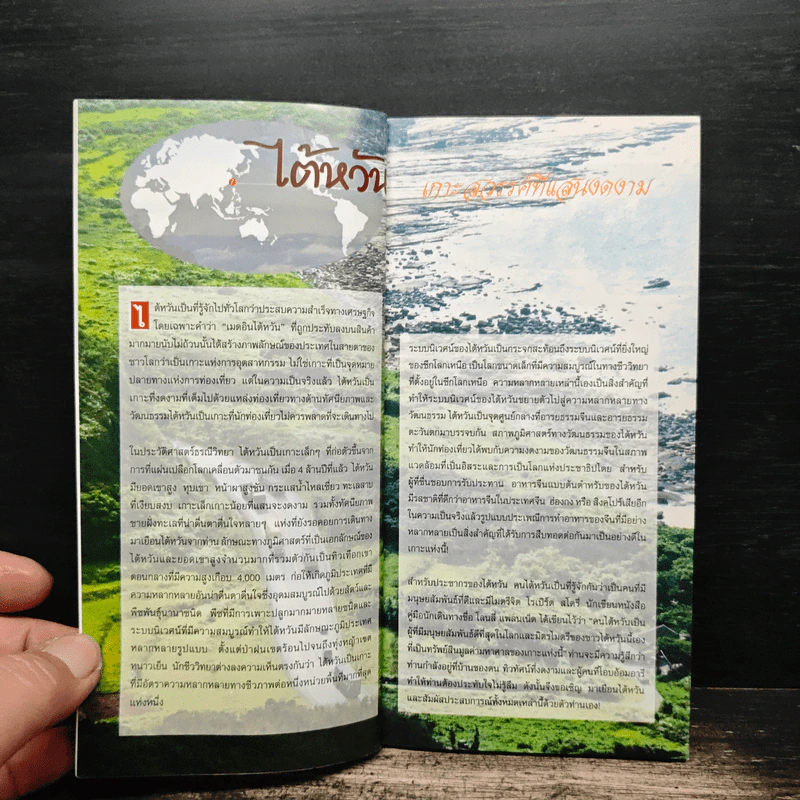 ไต้หวัน
เกาะสวรรค์ที่แสนงดงาม
ไต้หวันเป็นที่รู้จักไปทั่วโลกว่าประสบความสำเร็จทางเศรษฐกิจ
โดยเฉพาะคำว่า "เมดอินไต้หวัน" ที่ถูกประทับลงบนสินค้า
มากมายนับไม่ถ้วนนั้นได้สร้างภาพลักษณ์ของประเทศในสายตาของ
ชาวโลกว่าเป็นเกาะแห่งการอุตสาหกรรม ไม่ใช่เกาะที่เป็นจุดหมาย
ปลายทางแห่งการท่องเที่ยว แต่ในความเป็นจริงแล้ว ไต้หวันเป็น
เกาะที่งดงามที่เต็มไปด้วยแหล่งท่องเที่ยวทางด้านทัศนียภาพและ
วัฒนธรรมไต้หวันเป็นเกาะที่นักท่องเที่ยวไม่ควรพลาดที่จะเดินทางไป
ในประวัติศาสตร์ธรณีวิทยา ไต้หวันเป็นเกาะเล็กๆ ที่ก่อตัวขึ้นจาก
การที่แผ่นเปลือกโลกเคลื่อนตัวมาชนกัน เมื่อ 4 ล้านปีที่แล้ว ไต้หวัน
มียอดเขาสูง หุบเขา หน้าผาสูงชัน กระแสน้ำไหลเชี่ยว ทะเลสาบ
ที่เงียบสงบ เกาะเล็กเกาะน้อยที่แสนจะงดงาม รวมทั้งทัศนียภาพ
ชายฝั่งทะเลที่น่าตื่นตาตื่นใจหลายๆ แห่งที่ยังรอคอยการเดินทาง
มาเยือนไต้หวันจากท่าน ลักษณะทางภูมิศาสตร์ที่เป็นเอกลักษณ์ของ
ไต้หวันและยอดเขาสูงจำนวนมากที่รวมตัวกันเป็นทิวเทือกเขา
ตอนกลางที่มีความสูงเกือบ 4,000 เมตร ก่อให้เกิดภูมิประเทศที่มี
ความหลากหลายอันน่าตื่นตาตื่นใจซึ่งอุดมสมบูรณ์ไปด้วยสัตว์และ
พืชพันธุ์นานาชนิด พืชที่มีการเพาะปลูกมากมายหลายชนิดและ
ระบบนิเวศน์ที่มีความสมบูรณ์ทำให้ไต้หวันมีลักษณะภูมิประเทศ
หลากหลายรูปแบบ ตั้งแต่ป่าฝนเขตร้อนไปจนถึงทุ่งหญ้าเขต
หนาวเย็น นักชีววิทยาต่างลงความเห็นตรงกันว่า ไต้หวันเป็นเกาะ
ที่มีอัตราความหลากหลายทางชีวภาพต่อหนึ่งหน่วยพื้นที่มากที่สุด
แห่งหนึ่ง
ระบบนิเวศน์ของไต้หวันเป็นกระจกสะท้อนถึงระบบนิเวศน์ที่ยิ่งใหญ่
ของซีกโลกเหนือ เป็นโลกขนาดเล็กที่มีความสมบูรณ์ในทางชีววิทยา
ที่ตั้งอยู่ในซีกโลกเหนือ ความหลากหลายเหล่านี้เองเป็นสิ่งสำคัญที่
ทำให้ระบบนิเวศน์ของไต้หวันขยายตัวไปสู่ความหลากหลายทาง
วัฒนธรรม ไต้หวันเป็นจุดศูนย์กลางที่อารยธรรมจีนและอารยธรรม
ตะวันตกมาบรรจบกัน สภาพภูมิศาสตร์ทางวัฒนธรรมของไต้หวัน
ทำให้นักท่องเที่ยวได้พบกับความงดงามของวัฒนธรรมจีนในสภาพ
แวดล้อมที่เป็นอิสระและการเป็นโลกแห่งประชาธิปไตย สำหรับ
ผู้ที่ชื่นชอบการรับประทาน อาหารจีนแบบต้นตำหรับของไต้หวัน
มีรสชาติที่ดีกว่าอาหารจีนในประเทศจีน ฮ่องกง หรือ สิงคโปร์เสียอีก
ในความเป็นจริงแล้วรูปแบบประเพณีการทำอาหารของจีนที่มีอย่าง
หลากหลายเป็นสิ่งสำคัญที่ได้รับการสืบทอดต่อกันมาเป็นอย่างดีใน
เกาะแห่งนี้!
สำหรับประชากรของไต้หวัน คนไต้หวันเป็นที่รู้จักกันว่าเป็นคนที่มี
มนุษยสัมพันธ์ที่ดีและมีไมตรีจิต โรเบิร์ต สโตรี่ นักเขียนหนังสือ
คู่มือนักเดินทางชื่อ โลนลี่ แพลนเน็ต ได้เขียนไว้ว่า "คนไต้หวันเป็น
ผู้ที่มีมนุษยสัมพันธ์ดีที่สุดในโลกและมิตรไมตรีของชาวไต้หวันนี้เอง
ที่เป็นทรัพย์สินมูลค่ามหาศาลของเกาะแห่งนี้" ท่านจะมีความรู้สึกว่า
ท่านกำลังอยู่ที่บ้านของตน ทิวทัศน์ที่งดงามและผู้คนที่โอบอ้อมอารี
ทำให้ท่านต้องประทับใจไม่รู้ลืม ดังนั้นจึงขอเชิญ มาเยือนไต้หวัน
และสัมผัสประสบการณ์ทั้งหมดเหล่านี้ด้วยตัวท่านเอง!